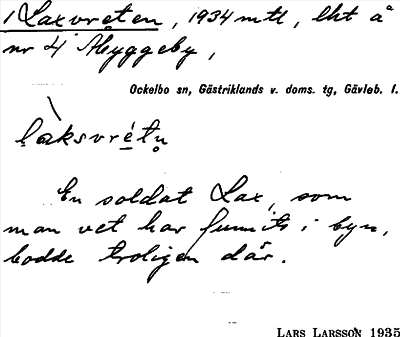 1 Laxvreten, 1934 mtl, lht å
nr 4 Åbyggeby,
Ockelbo sn, Gästriklands v. doms. tg, Gävleb. l.
làksvrétn̥
En soldat Lax, som
man vet har funnits i byn,
bodde troligen där.
LARS LARSSON 1935